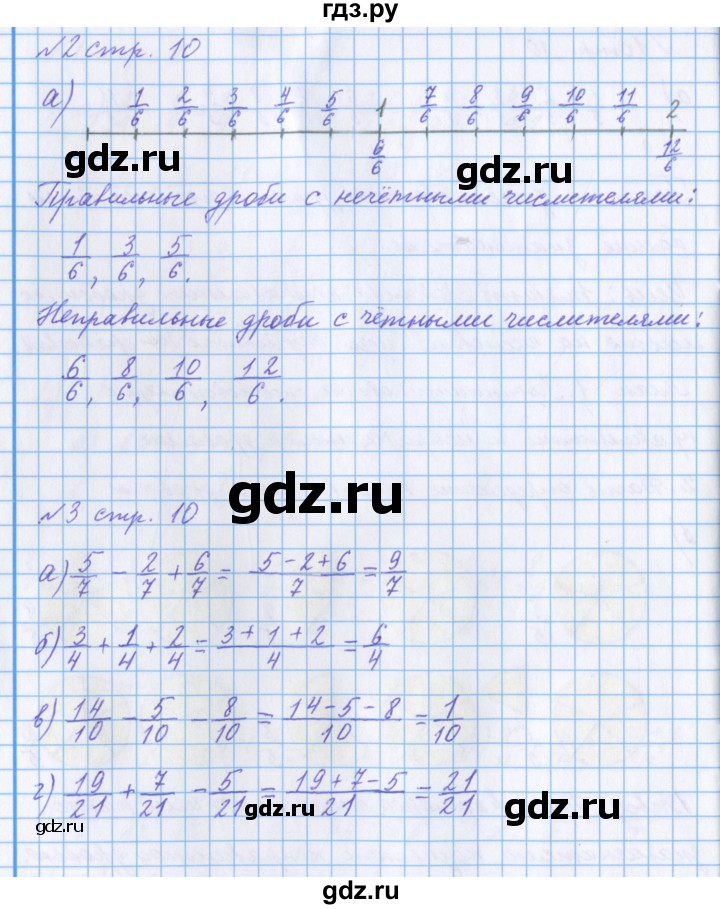 гдз.ру
№2 стр. 10
а) 1/6 2/6 3/6 4/6 5/6 1 7/6 8/6 9/6 10/6 11/6 2
6/6 12/6
gdz.ru gdz.ru
Правильные дроби с нечётными числителями:
1/6, 3/6, 5/6.
Неправильные дроби с чётными числителями:
6/6, 8/6, 10/6, 12/6.
gdz.ru
№3 стр. 10
а) 5/7 - 2/7 + 6/7 = (5-2+6)/7 = 9/7
б) 3/4 + 1/4 + 2/4 = (3+1+2)/4 = 6/4
в) 14/10 - 5/10 - 8/10 = (14-5-8)/10 = 1/10
г) 19/21 + 7/21 - 5/21 = (19+7-5)/21 = 21/21
gdz.ru gdz.ru gdz.ru
gdz.ru